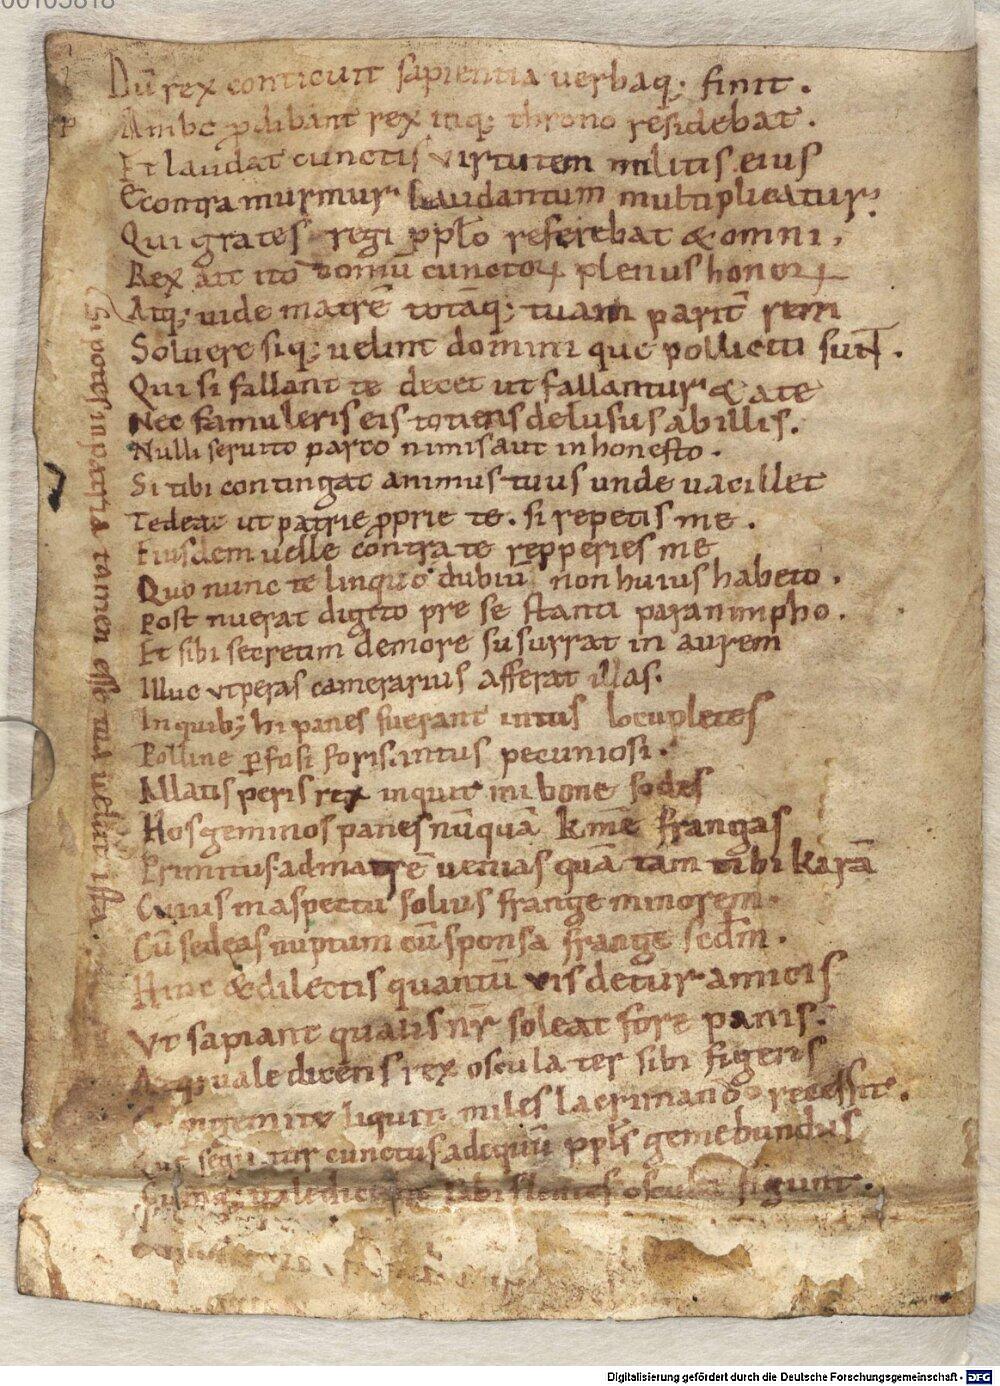 00103818
Dū rex conticuit sapientia verbaq; finit.
Ambo ꝓdibant rex inq; throno residebat.
Et laudat cunctis virtutem militis eius
Econtra murmur laudantum multiplicatur.
Qui grates regi ꝑ pplo referebat & omni.
Rex ait ito domū cunctoꝝ plenus honoꝝ
Atq; uide matrē totāq; tuam parit̄ rem
Soluere siq; uelint domini que polliciti sunt.
Qui si fallant te decet ut fallantur & a te
Nec famuleris eis totiens delusus ab illis.
Nulli seruito parco nimis aut inhonesto.
Si tibi contingat animus tuus unde uacillet
Tedeat ut patrie ꝓprie te. si repetis me.
Eiusdem uelle contra te repperies me
Quo nunc te linquo dubiū non huius habeto.
Post nuerat digito pre se stanti paranimpho.
Et sibi secretim de more susurrat in aurem
Illuc ut peras camerarius afferat illas.
In quib; hi panes fuerant intus locupletes
Polline ꝑfusi foris. intus pecuniosi.
Allatis peris rex inquit mi bone sodes
Hos geminos panes nūquā k me frangas
Primitus ad matrē uenias quā tam tibi karā
Cuius in aspectu solius frange minorem.
Cū sedeas nuptum cū sponsa frange scdm.
Hinc & dilectis quantū vis detur amicis
Vt sapiant qualis nr̄ soleat fore panis.
Atq; uale dicens rex oscula ter sibi figens
liquit. miles lacrimando recessit.
cunctus ad equū ppls gemebundus
oscula figunt.
Si potes in patria tamen esse tui uelut ista.
Digitalisierung gefördert durch die Deutsche Forschungsgemeinschaft - DFG